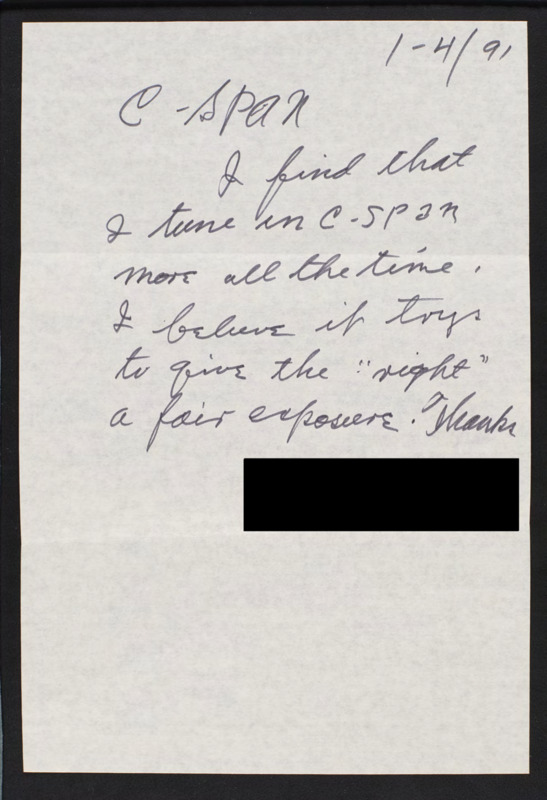 1-4/91
C-SPAN
I find that
I tune in C-SPAN
more all the time.
I believe it trys
to give the "right"
a fair exposure. Thanks